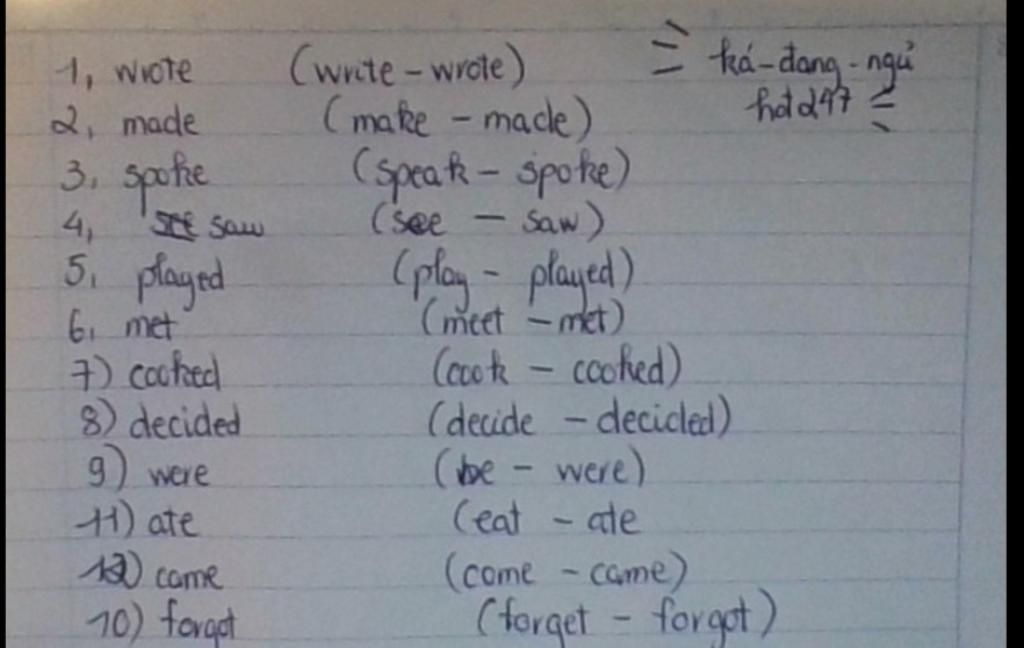 1, wrote (write - wrote)
2, made (make - made)
3, spoke (speak - spoke)
4, saw (see - saw)
5, played (play - played)
6, met (meet - met)
7) cooked (cook - cooked)
8) decided (decide - decided)
9) were (be - were)
11) ate (eat - ate
12) came (come - came)
10) forgot (forget - forgot)
ká-đang-ngủ
hdt247